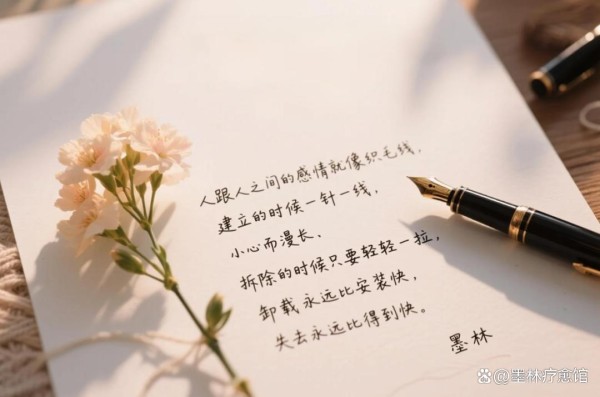 人跟人之间的感情就像织毛线，
建立的时候一针一线，
小心而漫长，
拆除的时候只要轻轻一拉，
卸载永远比安装快，
失去永远比得到快。
墨林
@墨林疗愈馆